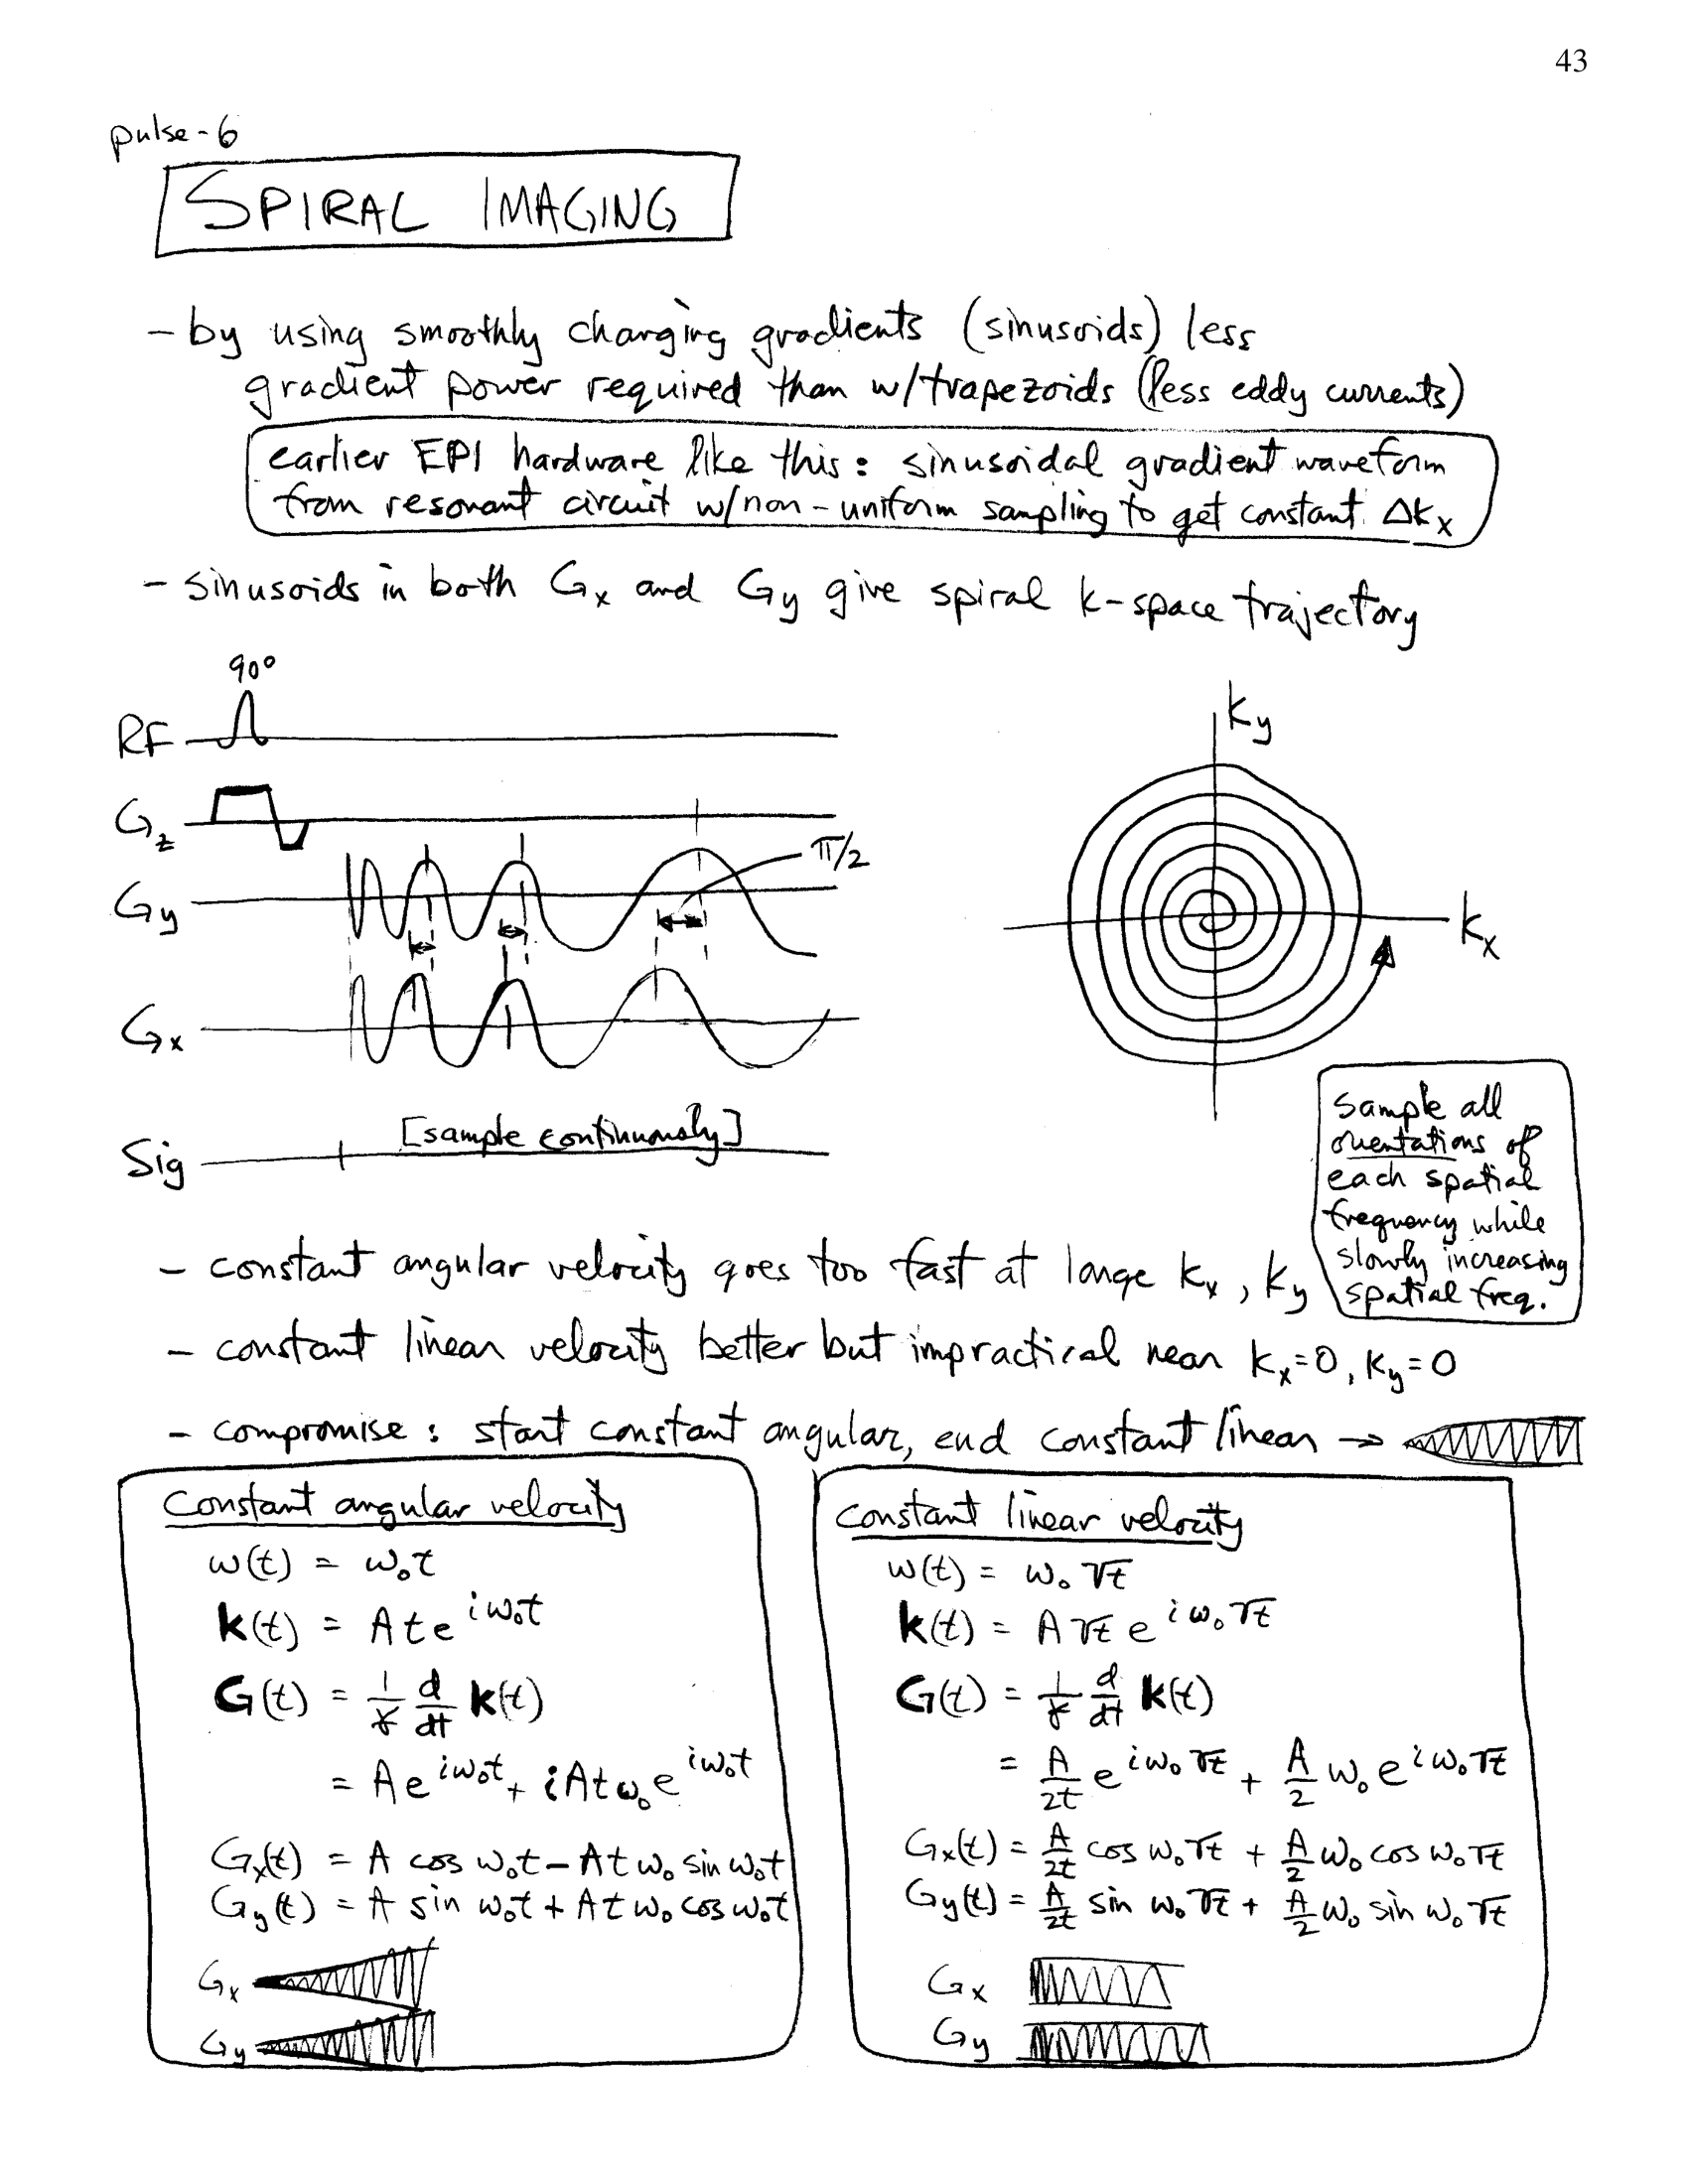 43
pulse-6
SPIRAL IMAGING
- by using smoothly changing gradients (sinusoids) less
gradient power required than w/trapezoids (less eddy currents)
earlier EPI hardware like this: sinusoidal gradient waveform
from resonant circuit w/non-uniform sampling to get constant Δkx
- sinusoids in both Gx and Gy give spiral k-space trajectory
90°
RF
Gz
π/2
Gy
Gx
Sig [sample continuously]
ky
kx
Sample all
orientations of
each spatial
frequency while
slowly increasing
spatial freq.
- constant angular velocity goes too fast at large kx, ky
- constant linear velocity better but impractical near kx=0, ky=0
- compromise: start constant angular, end constant linear →
Constant angular velocity
ω(t) = ω₀t
k(t) = A t e^{iω₀t}
G(t) = 1/γ d/dt k(t)
= A e^{iω₀t} + iAtω₀e^{iω₀t}
Gx(t) = A cos ω₀t - Atω₀ sin ω₀t
Gy(t) = A sin ω₀t + Atω₀ cos ω₀t
Gx
Gy
Constant linear velocity
ω(t) = ω₀√t
k(t) = A√t e^{iω₀√t}
G(t) = 1/γ d/dt k(t)
= A/2t e^{iω₀√t} + A/2 ω₀e^{iω₀√t}
Gx(t) = A/2t cos ω₀√t + A/2 ω₀ cos ω₀√t
Gy(t) = A/2t sin ω₀√t + A/2 ω₀ sin ω₀√t
Gx
Gy